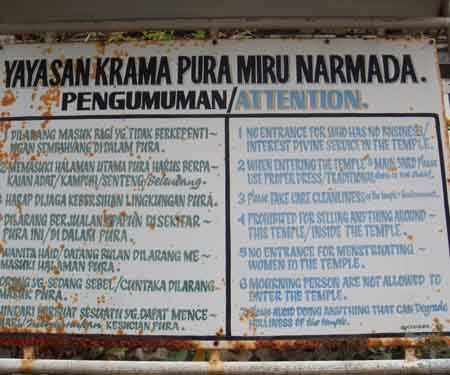 YAYASAN KRAMA PURA MIRU NARMADA.
PENGUMUMAN/ATTENTION.
1 DILARANG MASUK BAGI YG TIDAK BERKEPENTI~
NGAN SEMBAHYANG DI DALAM PURA.
2 MEMASUKI HALAMAN UTAMA PURA HARUS BERPA~
KAIAN ADAT/KAMPUH/SENTENG/
3 HARAP DIJAGA KEBERSIHAN LINGKUNGAN PURA.
DILARANG BERJUALAN APAPUN DI SEKITAR~
PURA INI/DI DALAM PURA.
WANITA HAID/DATANG BULAN DILARANG ME~
MASUKI HALAMAN PURA.
ORANG YG. SEDANG SEBEL/CUNTAKA DILARANG
MASUK PURA.
HINDARI BERBUAT SESUATU YG. DAPAT MENCE~
KESUCIAN PURA.
1 NO ENTRANCE FOR WHO HAS NO BUSINESS/
INTEREST DIVINE SERVICE IN THE TEMPLE.
2 WHEN ENTERING THE TEMPLE'S MAIN YARD Please
USE PROPER DRESS/TRADITIONAL
3 Please TAKE CARE CLEANLINESS of the temple's
4 PROHIBITED FOR SELLING ANYTHING AROUND~
THIS TEMPLE/INSIDE THE TEMPLE.
5 NO ENTRANCE FOR MENSTRUATING~
WOMEN TO THE TEMPLE.
6 MOURNING PERSON ARE NOT ALLOWED TO
ENTER THE TEMPLE.
Please AVOID DOING ANYTHING THAT CAN Degrade
HOLLINESS of the temple.